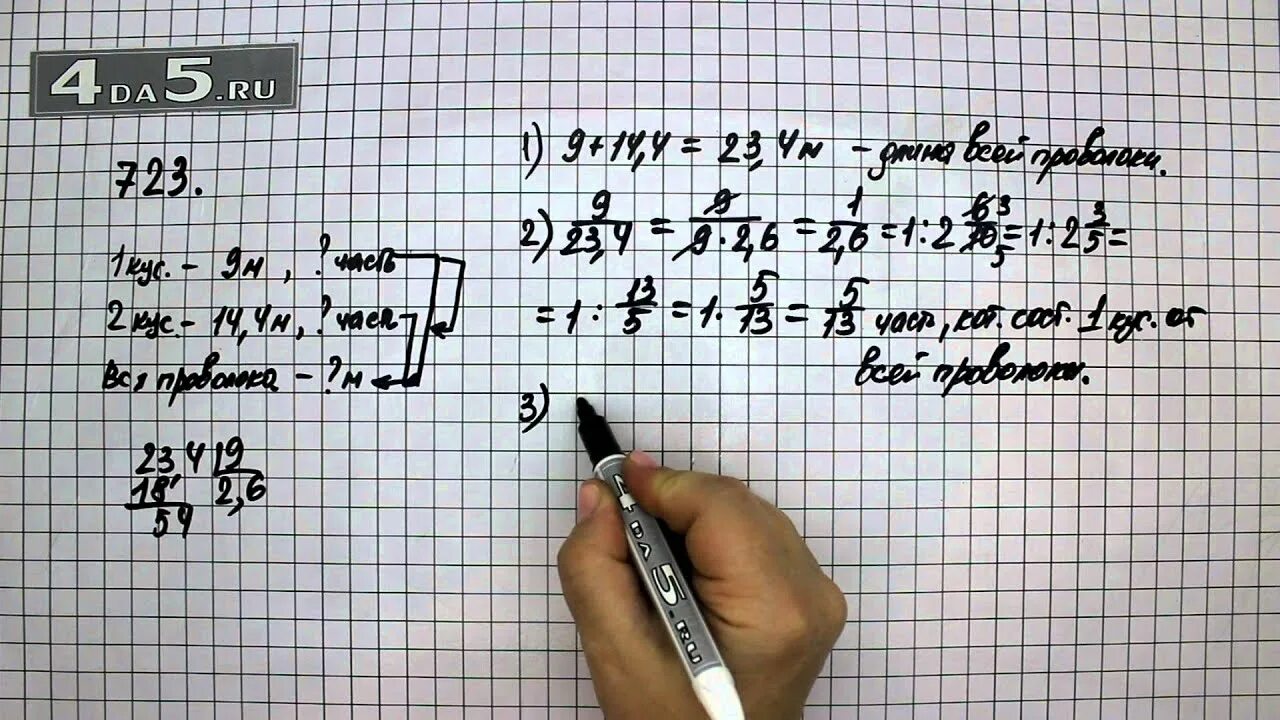 4DA5.RU
723.
1 кус. – 9м, ? часть
2 кус – 14,4м, ? часть
Вся проволока – ? м
23,4 | 9
18 2,6
54
1) 9 + 14,4 = 23,4м – длина всей проволоки.
2) 9/23,4 = 9/9·2,6 = 1/2,6 = 1 : 2 6/10 3/5 = 1 : 2 3/5 =
= 1 : 13/5 = 1 · 5/13 = 5/13 часть, кот. сост. 1 кус. от
всей проволоки.
3)
4DA5.RU